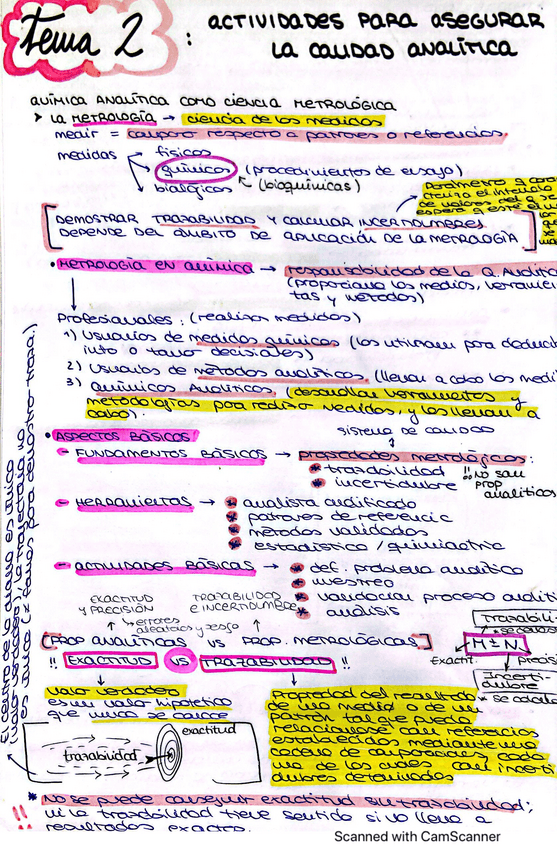 Tema 2 : ACTIVIDADES PARA ASEGURAR
LA CALIDAD ANALÍTICA
QUÍMICA ANALÍTICA COMO CIENCIA METROLÓGICA
➤ LA METROLOGÍA → ciencia de las medidas
medir = comparar respecto a patrones o referencias.
medidas → físicas
químicas (procedimientos de ensayo)
biológicas (bioquímicas)
Parámetro q cara
cteriza el intervalo
de valores del q se
espera q esté el
DEMOSTRAR TRAZABILIDAD Y CALCULAR INCERTIDUMBRES
DEPENDE DEL ÁMBITO DE APLICACIÓN DE LA METROLOGÍA
• METROLOGÍA EN QUÍMICA → responsabilidad de la Q. Analíti
(proporciona los medios, herramien
tas y métodos)
Profesionales: (realizan medidas)
1) Usuarios de medidas químicas (las utilizan para deducir
info o tomar decisiones)
2) Usuarios de métodos analíticos (llevan a cabo las medi
3) Químicos Analíticos (desarrollan herramientas y
metodologías para realizar medidas, y las llevan a
cabo).
sistema de calidad
• ASPECTOS BÁSICOS:
- FUNDAMENTOS BÁSICOS → propiedades metrológicas:
* trazabilidad
* incertidumbre
!! no son
prop
analíticas
- HERRAMIENTAS → * analista cualificado
* patrones de referencia
* métodos validados
* estadística / quimiometría
- ACTIVIDADES BÁSICAS → * def. problema analítico
* muestreo
* validación proceso analíti
* análisis
EXACTITUD
Y PRECISIÓN
TRAZABILIDAD
E INCERTIDUMBRE
→ errores
aleatorios y sesgo
[PROP ANALÍTICAS VS PROP. METROLÓGICAS]
!! EXACTITUD VS TRAZABILIDAD !!
Trazabili-
M ± N
Exactit.
Precis
Incerti-
dumbre
valor verdadero
es un valor hipotético
que nunca se conoce
Propiedad del resultado
de una medida o de un
patrón tal que pueda
relacionarse con referencias
establecidas mediante una
cadena de comparaciones, cada
una de las cuales con incerti
dumbres determinadas
trazabilidad
exactitud
El centro de la diana es único
(valor verdadero), la trayectoria no
es única (≠ formas para demostrar traza.)
* No se puede conseguir exactitud sin trazabilidad;
!! ni la trazabilidad tiene sentido si no lleva a
resultados exactos.
Scanned with CamScanner